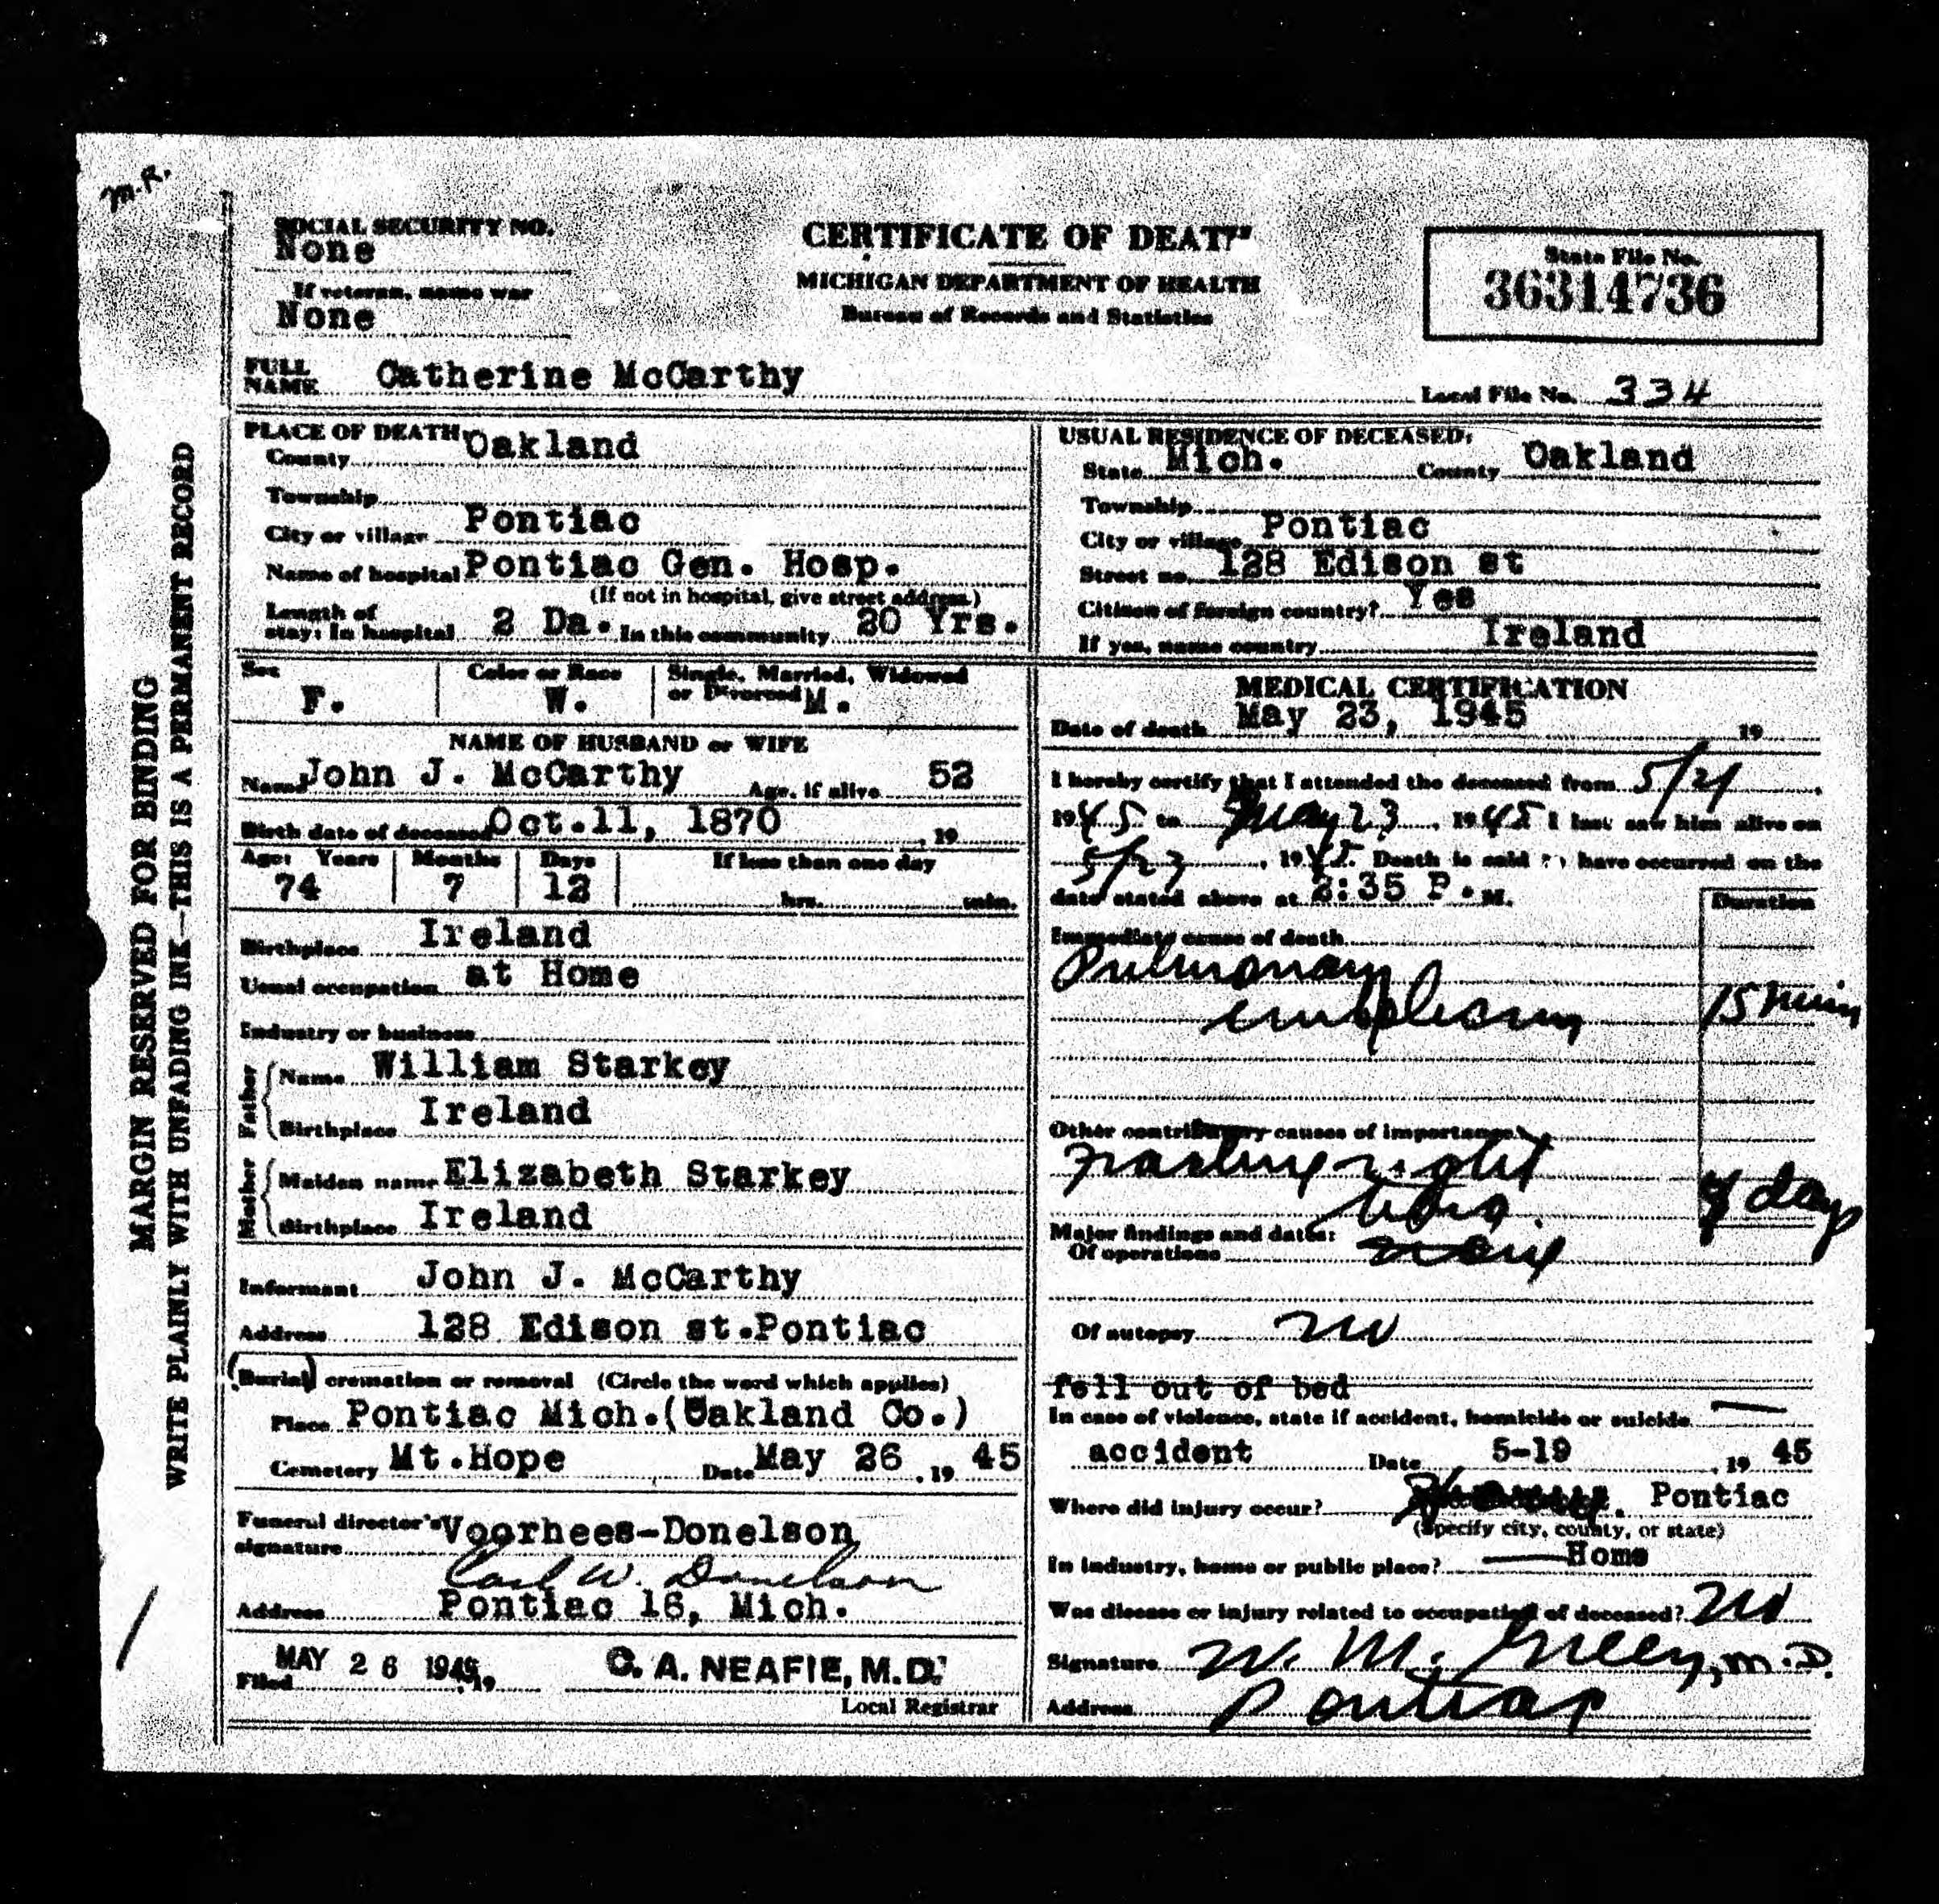 M.R.
SOCIAL SECURITY NO.
None
If veteran, name war
None
CERTIFICATE OF DEATH
MICHIGAN DEPARTMENT OF HEALTH
Bureau of Records and Statistics
State File No.
36314736
FULL NAME Catherine McCarthy
Local File No. 334
MARGIN RESERVED FOR BINDING
WRITE PLAINLY WITH UNFADING INK—THIS IS A PERMANENT RECORD
PLACE OF DEATH:
County Oakland
Township
City or village Pontiac
Name of hospital Pontiac Gen. Hosp.
(If not in hospital, give street address.)
Length of stay: In hospital 2 Da. In this community 20 Yrs.
USUAL RESIDENCE OF DECEASED:
State Mich. County Oakland
Township
City or village Pontiac
Street no. 128 Edison st
Citizen of foreign country? Yes
If yes, name country Ireland
Sex F.
Color or Race W.
Single, Married, Widowed or Divorced M.
NAME OF HUSBAND or WIFE
Name John J. McCarthy Age, if alive 52
Birth date of deceased Oct.11, 1870 , 19
Age: Years Months Days If less than one day
74 7 12 hrs. min.
Birthplace Ireland
Usual occupation at Home
Industry or business
Father Name William Starkey
Birthplace Ireland
Mother Maiden name Elizabeth Starkey
Birthplace Ireland
Informant John J. McCarthy
Address 128 Edison st.Pontiac
(Burial) cremation or removal (Circle the word which applies)
Place Pontiac Mich.(Oakland Co.)
Cemetery Mt.Hope Date May 26 , 19 45
Funeral director's signature Voorhees-Donelson
Carl W. Donelson
Address Pontiac 16, Mich.
Filed MAY 26 1945, 19
C. A. NEAFIE, M.D.
Local Registrar
MEDICAL CERTIFICATION
Date of death May 23, 1945 19
I hereby certify that I attended the deceased from 5/21,
1945 to May 23, 1945 I last saw him alive on
5/23, 1945. Death is said to have occurred on the
date stated above at 2:35 P.M.
Duration
Immediate cause of death
Pulmonary
embolism 15 min
Other contributory causes of importance:
Fracture right
tibia. 4 days
Major findings and dates:
Of operations none
Of autopsy no
fell out of bed
In case of violence, state if accident, homicide or suicide
accident Date 5-19 , 19 45
Where did injury occur? Pontiac
(Specify city, county, or state)
In industry, home or public place? Home
Was disease or injury related to occupation of deceased? no
Signature W. M. M.D.
Address Pontiac